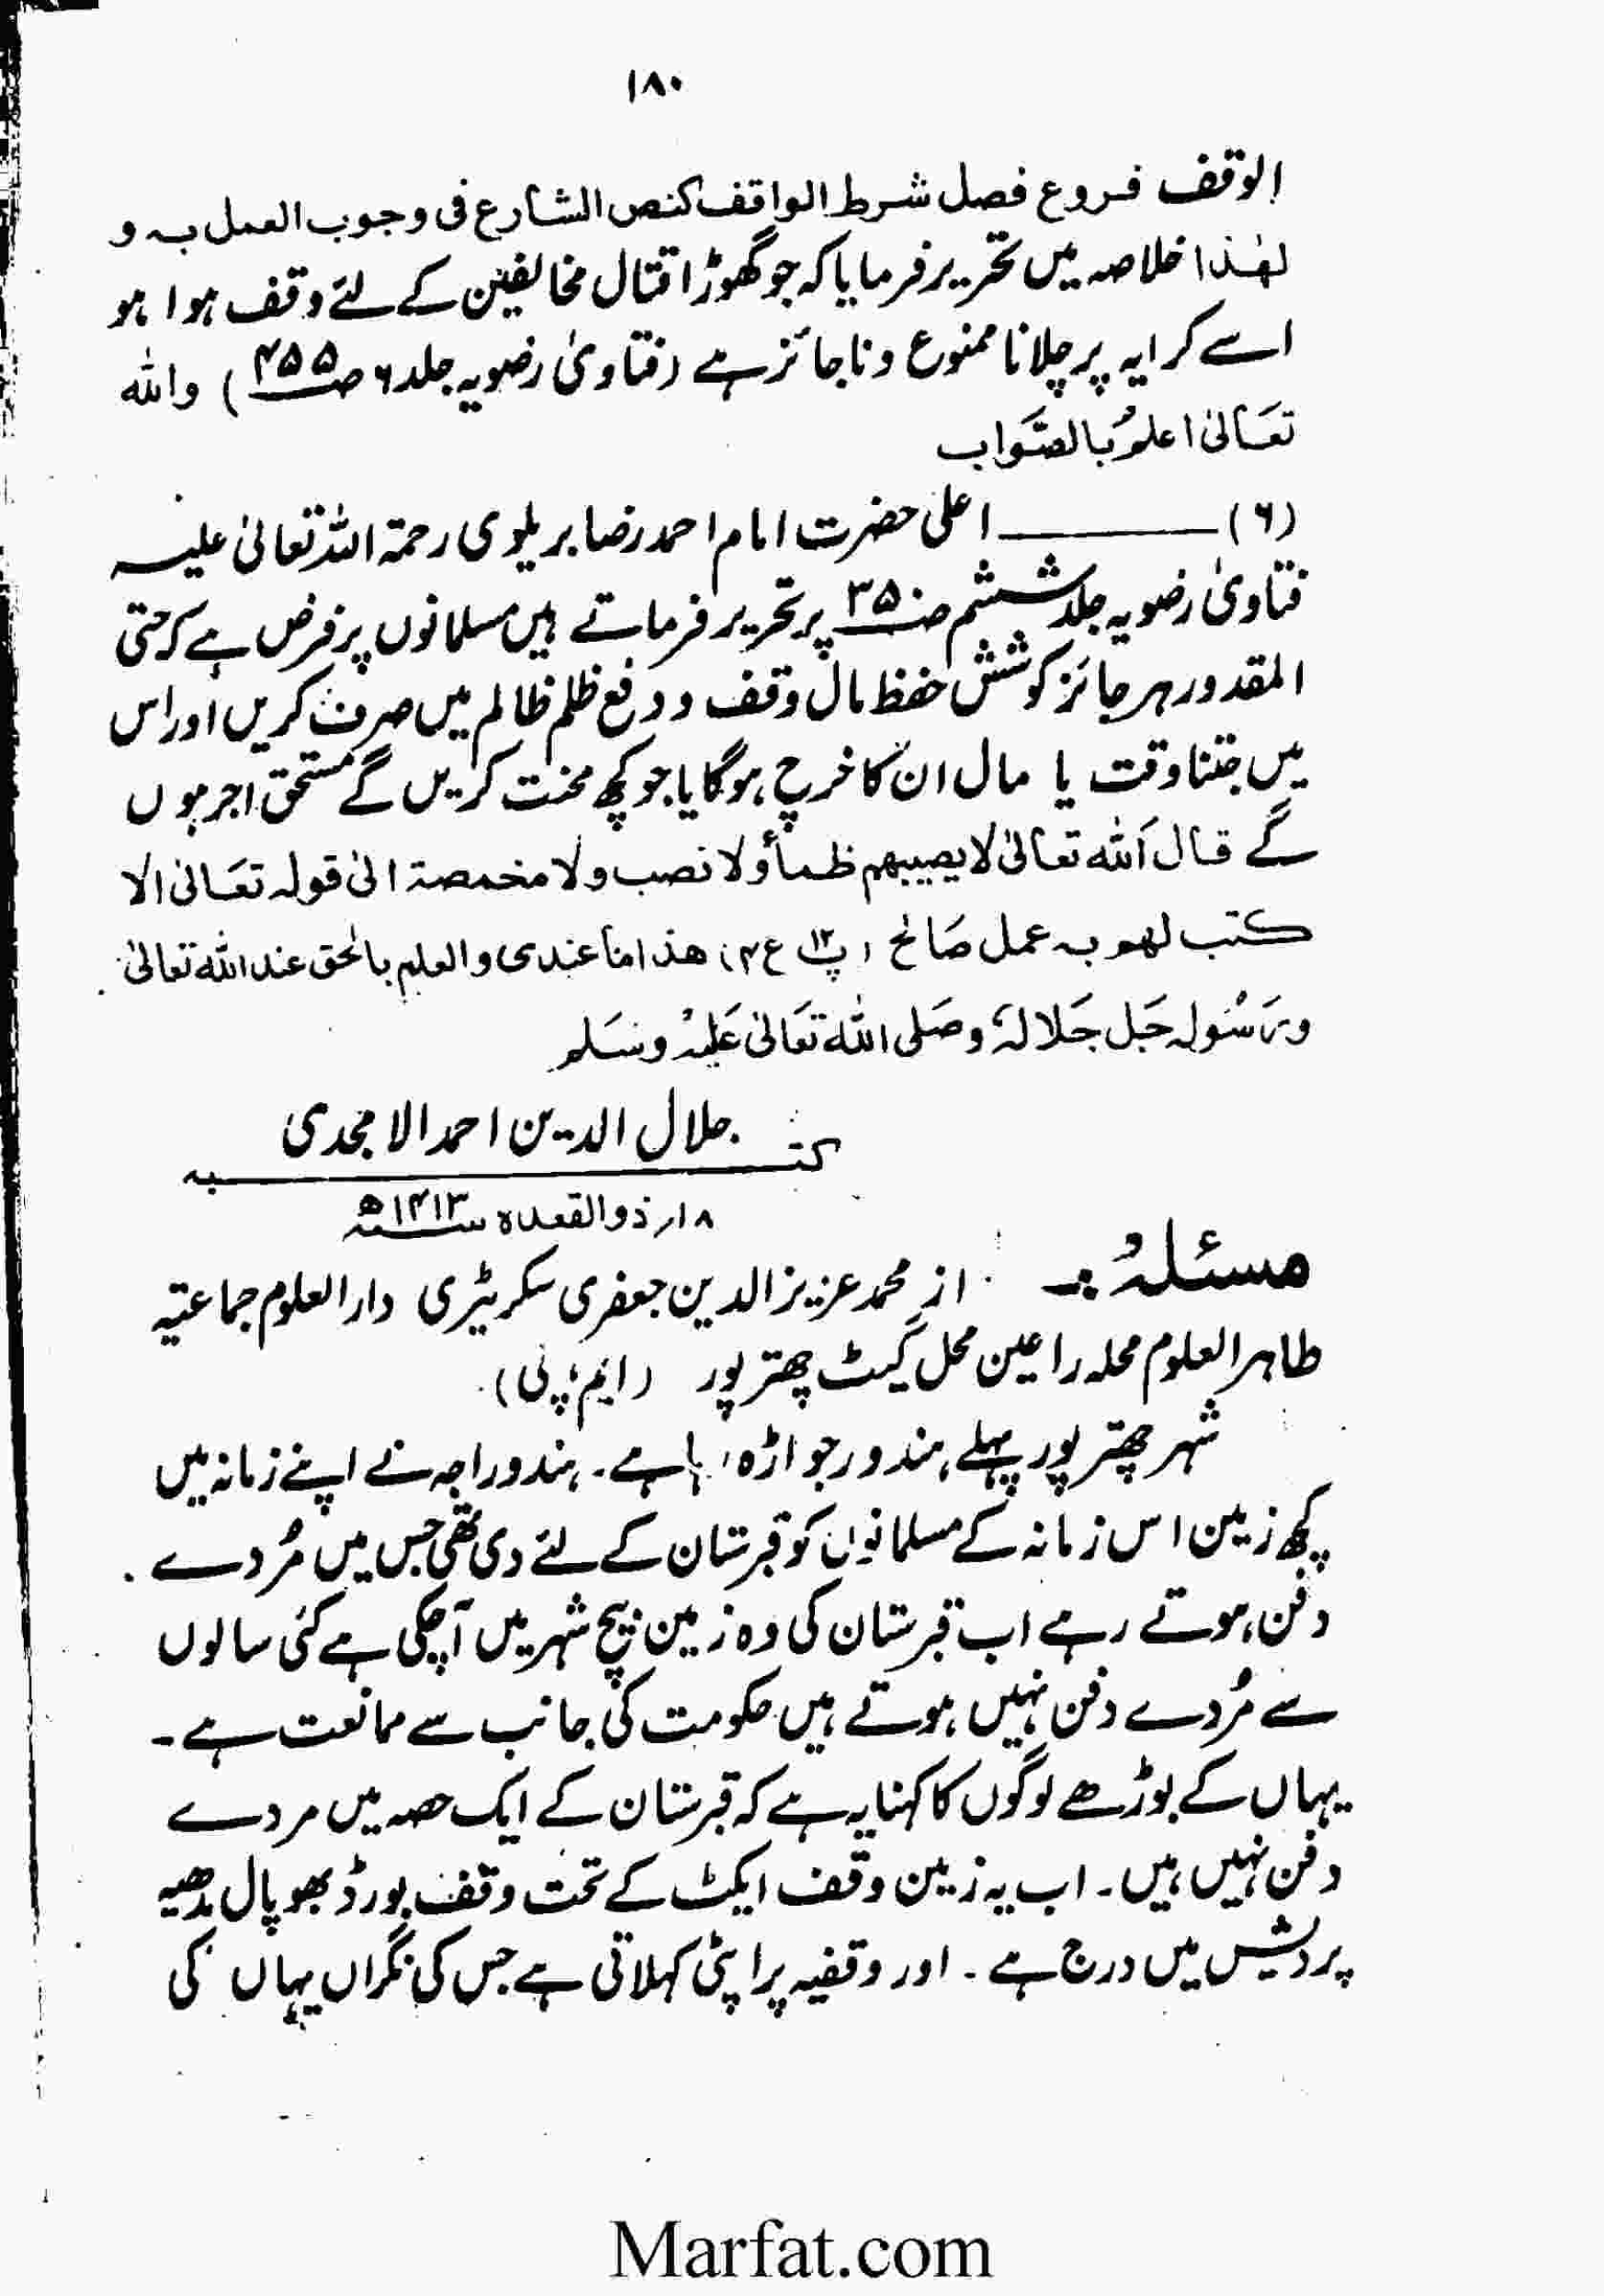 ۱۸۰
الوقف فروع فصل شرط الواقف کنص الشارع فی وجوب العمل بہ و
لھٰذا خلاصہ میں تحریر فرمایا کہ جو گھوڑا قتال مخالفین کے لئے وقف ہوا ہو
اسے کرایہ پر چلانا ممنوع و ناجائز ہے (فتاویٰ رضویہ جلد ۶ صـ۴۵۵) واللہ
تعَالیٰ اعلمُ بالصَّوَاب
(۶) ـــــــــ اعلیٰ حضرت امام احمد رضا بریلوی رحمۃ اللہ تعالیٰ علیہ
فتاویٰ رضویہ جلد ششم صـ۳۵۰ پر تحریر فرماتے ہیں مسلمانوں پر فرض ہے کہ حتی
المقدور ہر جائز کوشش حفظ مال وقف و دفع ظلم ظالم میں صرف کریں اور اس
میں جتنا وقت یا مال ان کا خرچ ہوگا یا جو کچھ محنت کریں گے مستحق اجر ہوں
گے قال اَللہ تعالیٰ لا یصیبھم ظمأ ولا نصب ولا مخمصۃ الیٰ قولہ تعَالیٰ الا
کتب لھم بہ عمل صَالح (پ۱۲ ع۴) ھذا ما عندی والعلم بالحق عند اللہ تعالیٰ
ورَسُولہ جَل جَلالہٗ وصَلی اللہ تعَالیٰ عَلیْہ وسَلم
کتبـــہ جلال الدین احمد الامجدی
۱۸؍ ذو القعدہ سنہ ۱۴۱۳ھ
مسئلہُ :۔ از محمد عزیز الدین جعفری سکریٹری دار العلوم جماعتیہ
طاہر العلوم محلہ راعین محل گیٹ چھتر پور (ایم؛ پی)
شہر چھتر پور پہلے ہندو رجواڑہ رہا ہے۔ ہندو راجہ نے اپنے زمانہ میں
کچھ زمین اس زمانہ کے مسلمانوں کو قبرستان کے لئے دی تھی جس میں مُردے
دفن ہوتے رہے اب قبرستان کی وہ زمین بیچ شہر میں آچکی ہے کئی سالوں
سے مُردے دفن نہیں ہوتے ہیں حکومت کی جانب سے ممانعت ہے۔
یہاں کے بوڑھے لوگوں کا کہنا یہ ہے کہ قبرستان کے ایک حصہ میں مردے
دفن نہیں ہیں۔ اب یہ زمین وقف ایکٹ کے تحت وقف بورڈ بھوپال مدھیہ
پردیش میں درج ہے۔ اور وقفیہ پراپٹی کہلاتی ہے جس کی نگراں یہاں کی
Marfat.com